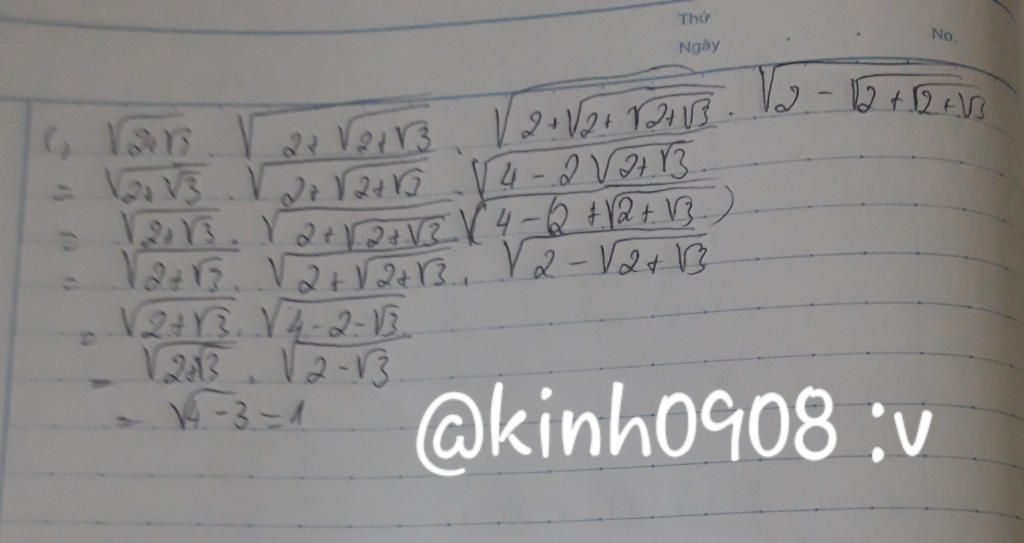 Thứ
Ngày No.
c, √(2+√3) . √(2+√(2+√3)) . √(2+√(2+√(2+√3))) . √(2-√(2+√(2+√3)))
= √(2+√3) . √(2+√(2+√3)) . √(4-2√(2+√3))
= √(2+√3) . √(2+√(2+√3)) √(4-(2+√(2+√3)))
= √(2+√3) . √(2+√(2+√3)) . √(2-√(2+√3))
= √(2+√3) . √(4-2-√3)
= √(2+√3) . √(2-√3)
= √(4-3) = 1
@kinh0908 :v